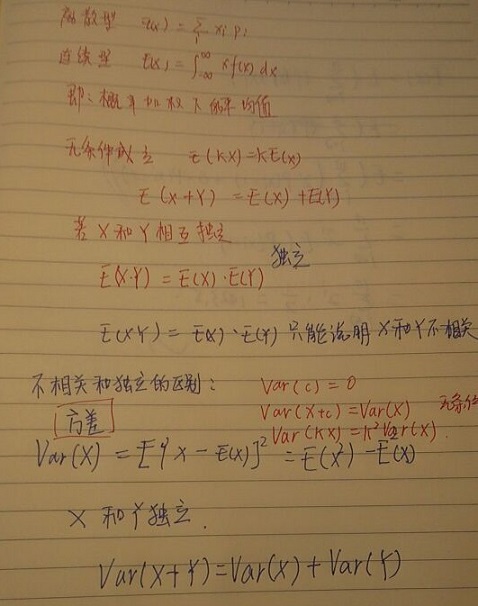 离散型 E(x) = Σ xi pi
连续型 E(x) = ∫_{-∞}^{∞} x f(x) dx
即: 概率加权下的平均值
无条件成立 E(kX)=kE(x)
E(X+Y) = E(X) + E(Y)
若 X 和 Y 相互独立
独立
E(X·Y) = E(X)·E(Y)
E(XY) = E(X)·E(Y) 只能说明 X和Y不相关
不相关和独立的区别:
Var(c) = 0
[方差]
Var(X+c) = Var(X) 无条件
Var(kX) = k²Var(X).
Var(X) = E{[X - E(X)]² = E(X²) - E(X)
X 和 Y 独立.
Var(X+Y) = Var(X) + Var(Y)